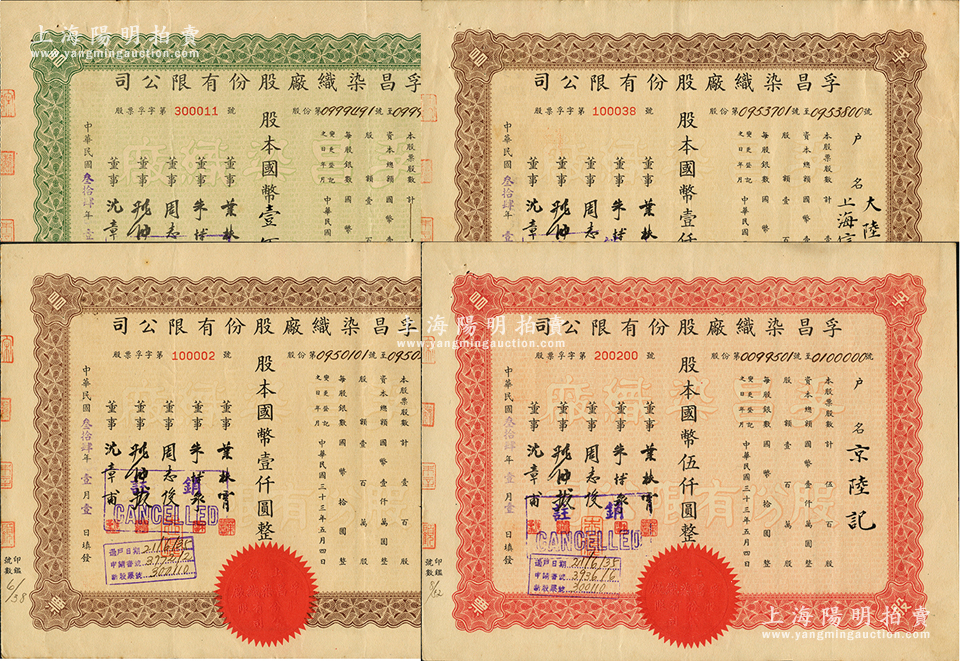 上海陽明拍賣
www.yangmingauction.com
司公限有份股廠織染昌孚
股票孚字第 300011 號
股份第0999491號至
股本國幣壹
本股票股數計
資本總額國幣壹
股額壹百
每股銀數國幣
變更登記
之日年月
中華民國
董事 葉
董事 朱
董事 周志
董事
董事 沈章
中華民國叁拾肆年壹
司公限有份股廠織染昌孚
股票孚字第 100038 號
股份第0953701號至0953800號
戶名 大陸
上海
股本國幣壹仟
本股票股數計
資本總額國幣壹
股額壹百
每股銀數國幣
變更登記
之日年月
中華民國
董事 葉
董事 朱
董事 周志
董事
董事 沈章
中華民國叁拾肆年壹
司公限有份股廠織染昌孚
股票孚字第 100002 號
股份第0950101號至
股本國幣壹仟圓整
本股票股數計壹百股
資本總額國幣壹仟萬圓整
股額壹百萬股
每股銀數國幣拾圓整
變更登記
之日年月
中華民國三十三年五月四日
董事 葉秋霄
董事 朱博泉
董事 周志俊
董事
董事 沈章甫
中華民國叁拾肆年壹月壹日填發
註銷
CANCELLED
過戶日期 21/6/35
新股票號 300110
印鑑
號數
6/38
上海陽明拍賣
www.yangmingauction.com
司公限有份股廠織染昌孚
股票孚字第 200200 號
股份第0099501號至0100000號
戶名 京陸記
股本國幣伍仟圓整
本股票股數計伍百股
資本總額國幣壹仟萬圓整
股額壹百萬股
每股銀數國幣拾圓整
變更登記
之日年月
中華民國三十三年五月四日
董事 葉秋霄
董事 朱博泉
董事 周志俊
董事
董事 沈章甫
中華民國叁拾肆年壹月壹日填發
註銷
CANCELLED
過戶日期 21/6/35
新股票號 300110
印鑑
號數
上海陽明拍賣
www.yangmingauction.com